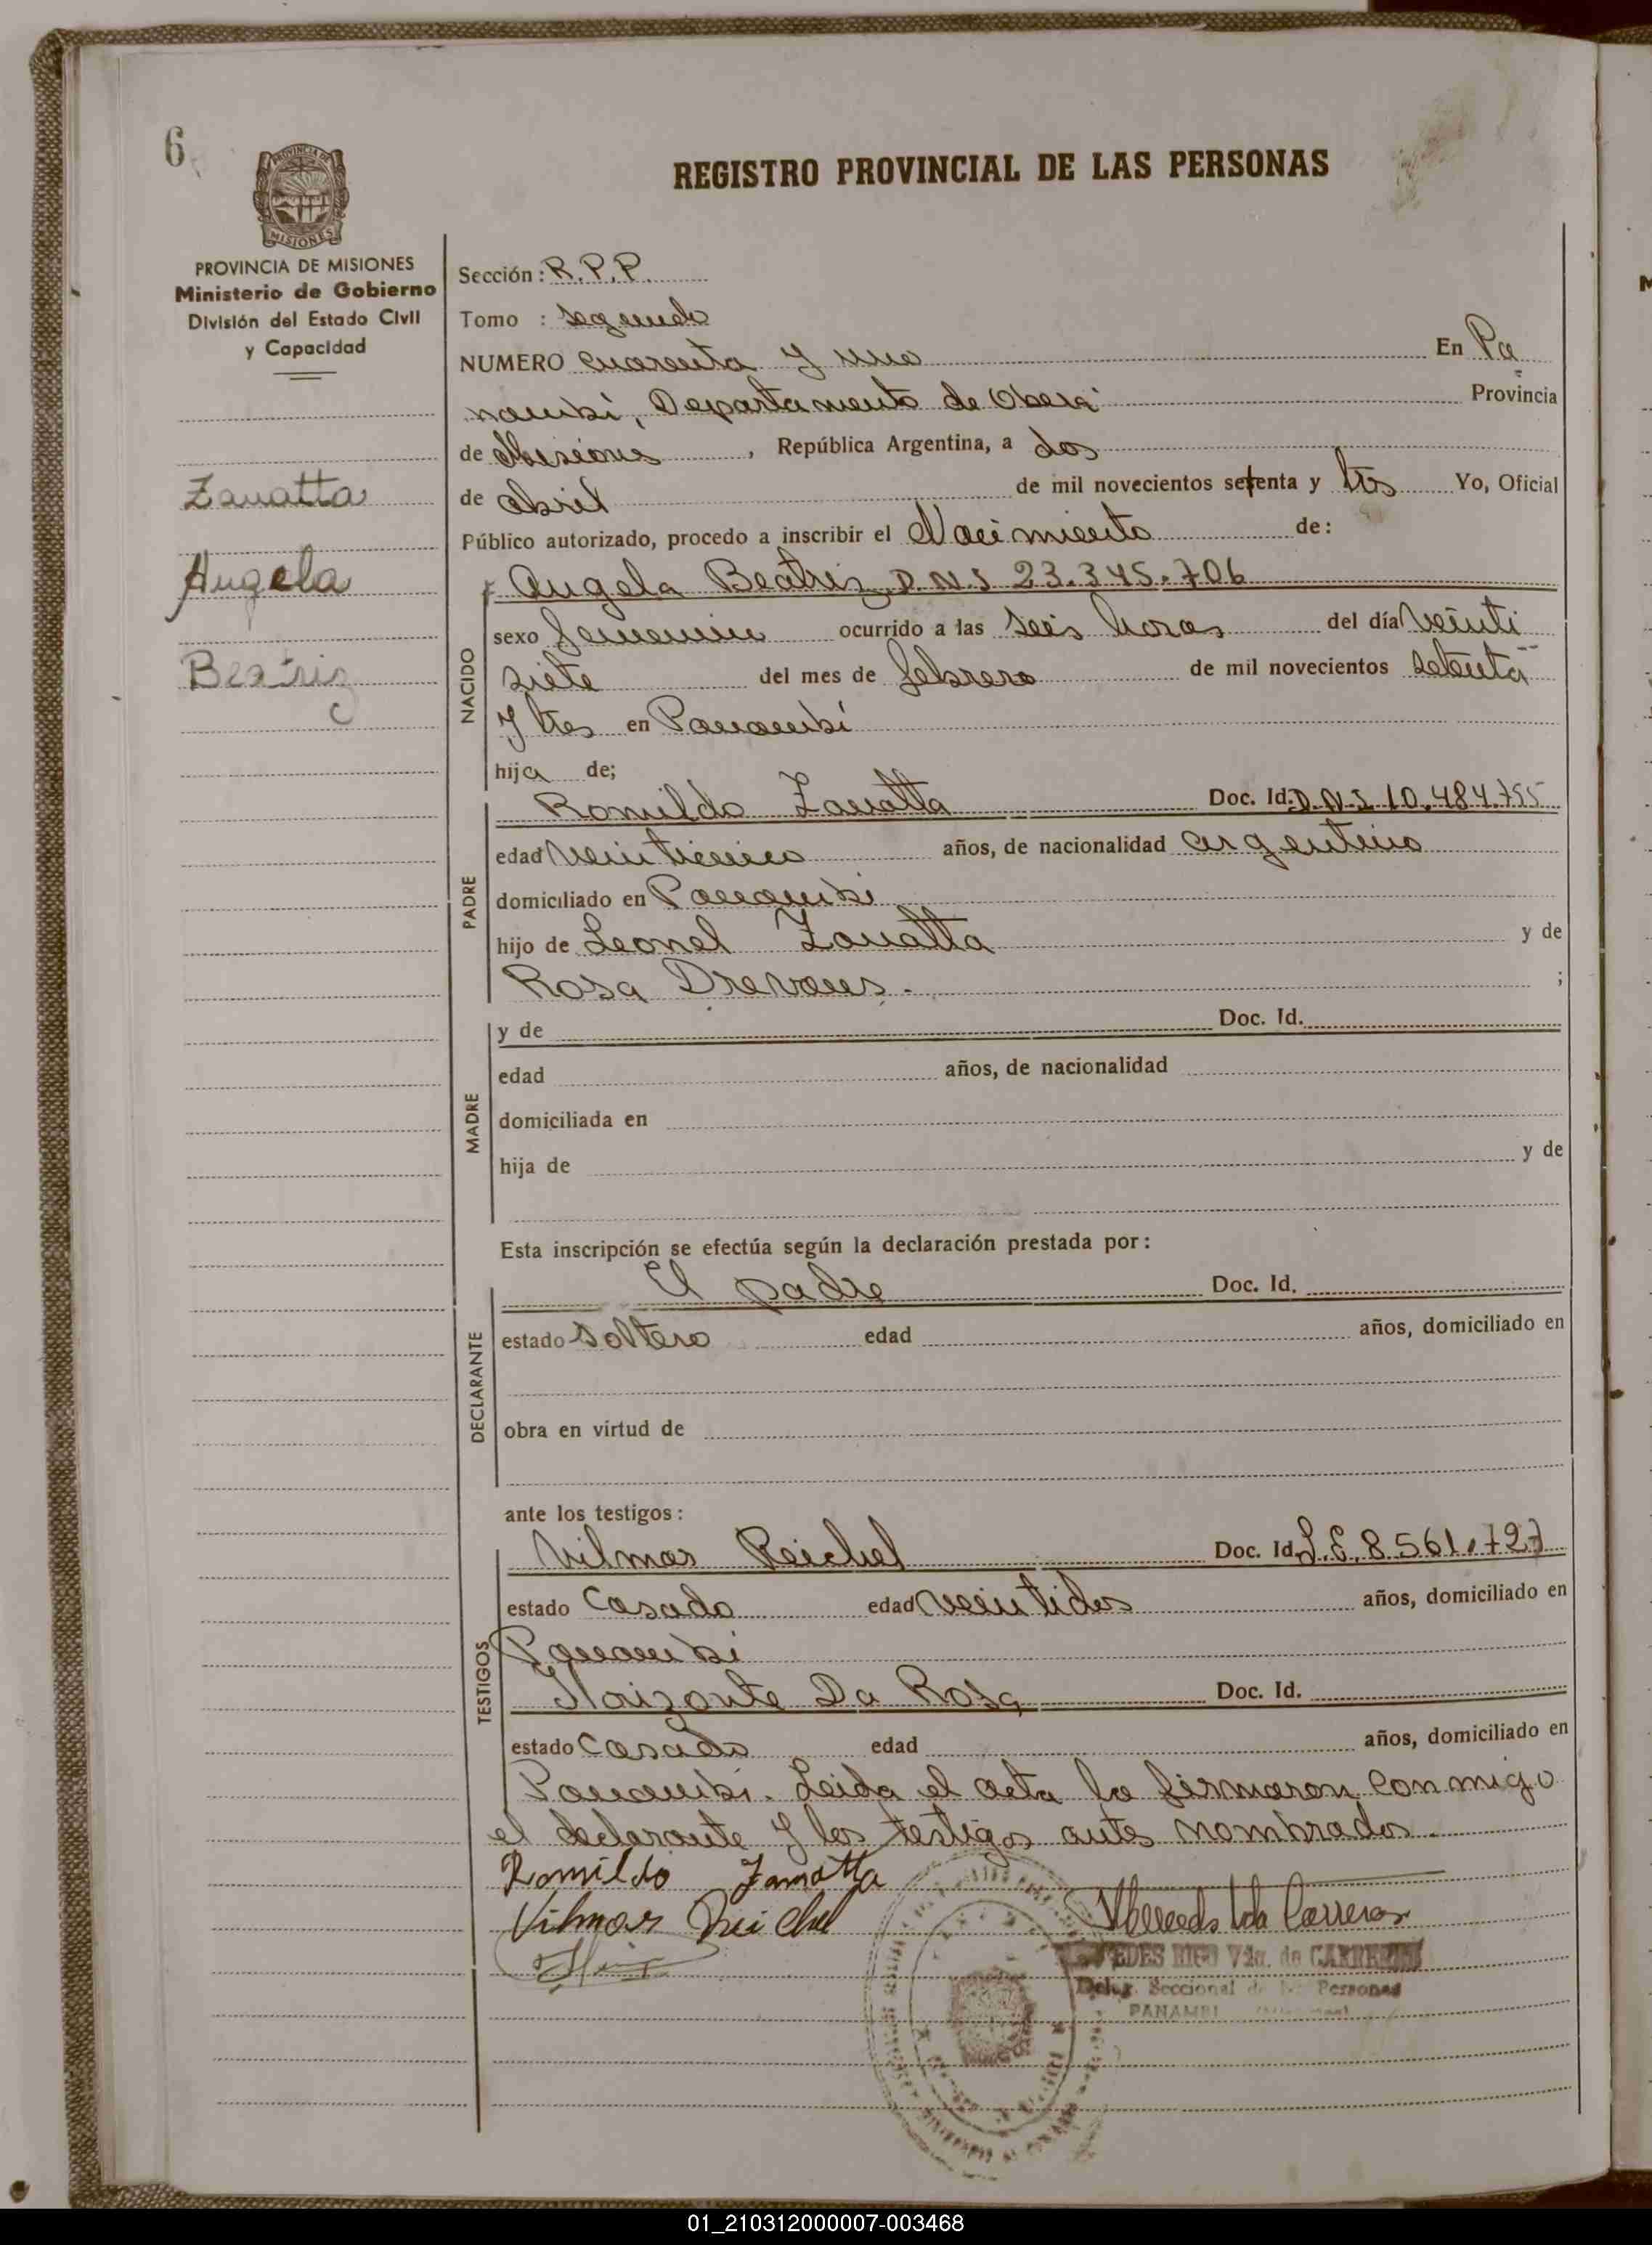 6
PROVINCIA DE
MISIONES
PROVINCIA DE MISIONES
Ministerio de Gobierno
División del Estado Civil
y Capacidad
Zanatta
Angela
Beatriz
REGISTRO PROVINCIAL DE LAS PERSONAS
Sección: R.P.P.
Tomo : segundo
NUMERO cuarenta y uno En Pa
nambí, Departamento de Oberá Provincia
de Misiones, República Argentina, a dos
de abril de mil novecientos setenta y tres Yo, Oficial
Público autorizado, procedo a inscribir el Nacimiento de:
NACIDO
Angela Beatriz D.N.I 23.345.706
sexo femenino ocurrido a las seis horas del día veinti
siete del mes de febrero de mil novecientos setenta
y tres en Panambí
hija de;
PADRE
Romildo Zanatta Doc. Id. D.N.I 10.484.755
edad veinticinco años, de nacionalidad argentino
domiciliado en Panambi
hijo de Leonel Zanatta y de
Rosa Drevans. ;
MADRE
y de Doc. Id.
edad años, de nacionalidad
domiciliada en
hija de y de
Esta inscripción se efectúa según la declaración prestada por:
DECLARANTE
El padre Doc. Id.
estado soltero edad años, domiciliado en
obra en virtud de
ante los testigos:
TESTIGOS
Vilmar Reichel Doc. Id. L.E. 8.561.727
estado Casado edad veintidos años, domiciliado en
Panambi
Da Rosa Doc. Id.
estado Casado edad años, domiciliado en
Panambi. Leida el acta la firmaron conmigo
el declarante y los testigos antes nombrados.
Romildo Zanatta
Vilmar Reichel
Vda Carreras
EDES RICO Vda. de CARRERAS
Deleg. Seccional de las Personas
PANAMBI
01_210312000007-003468